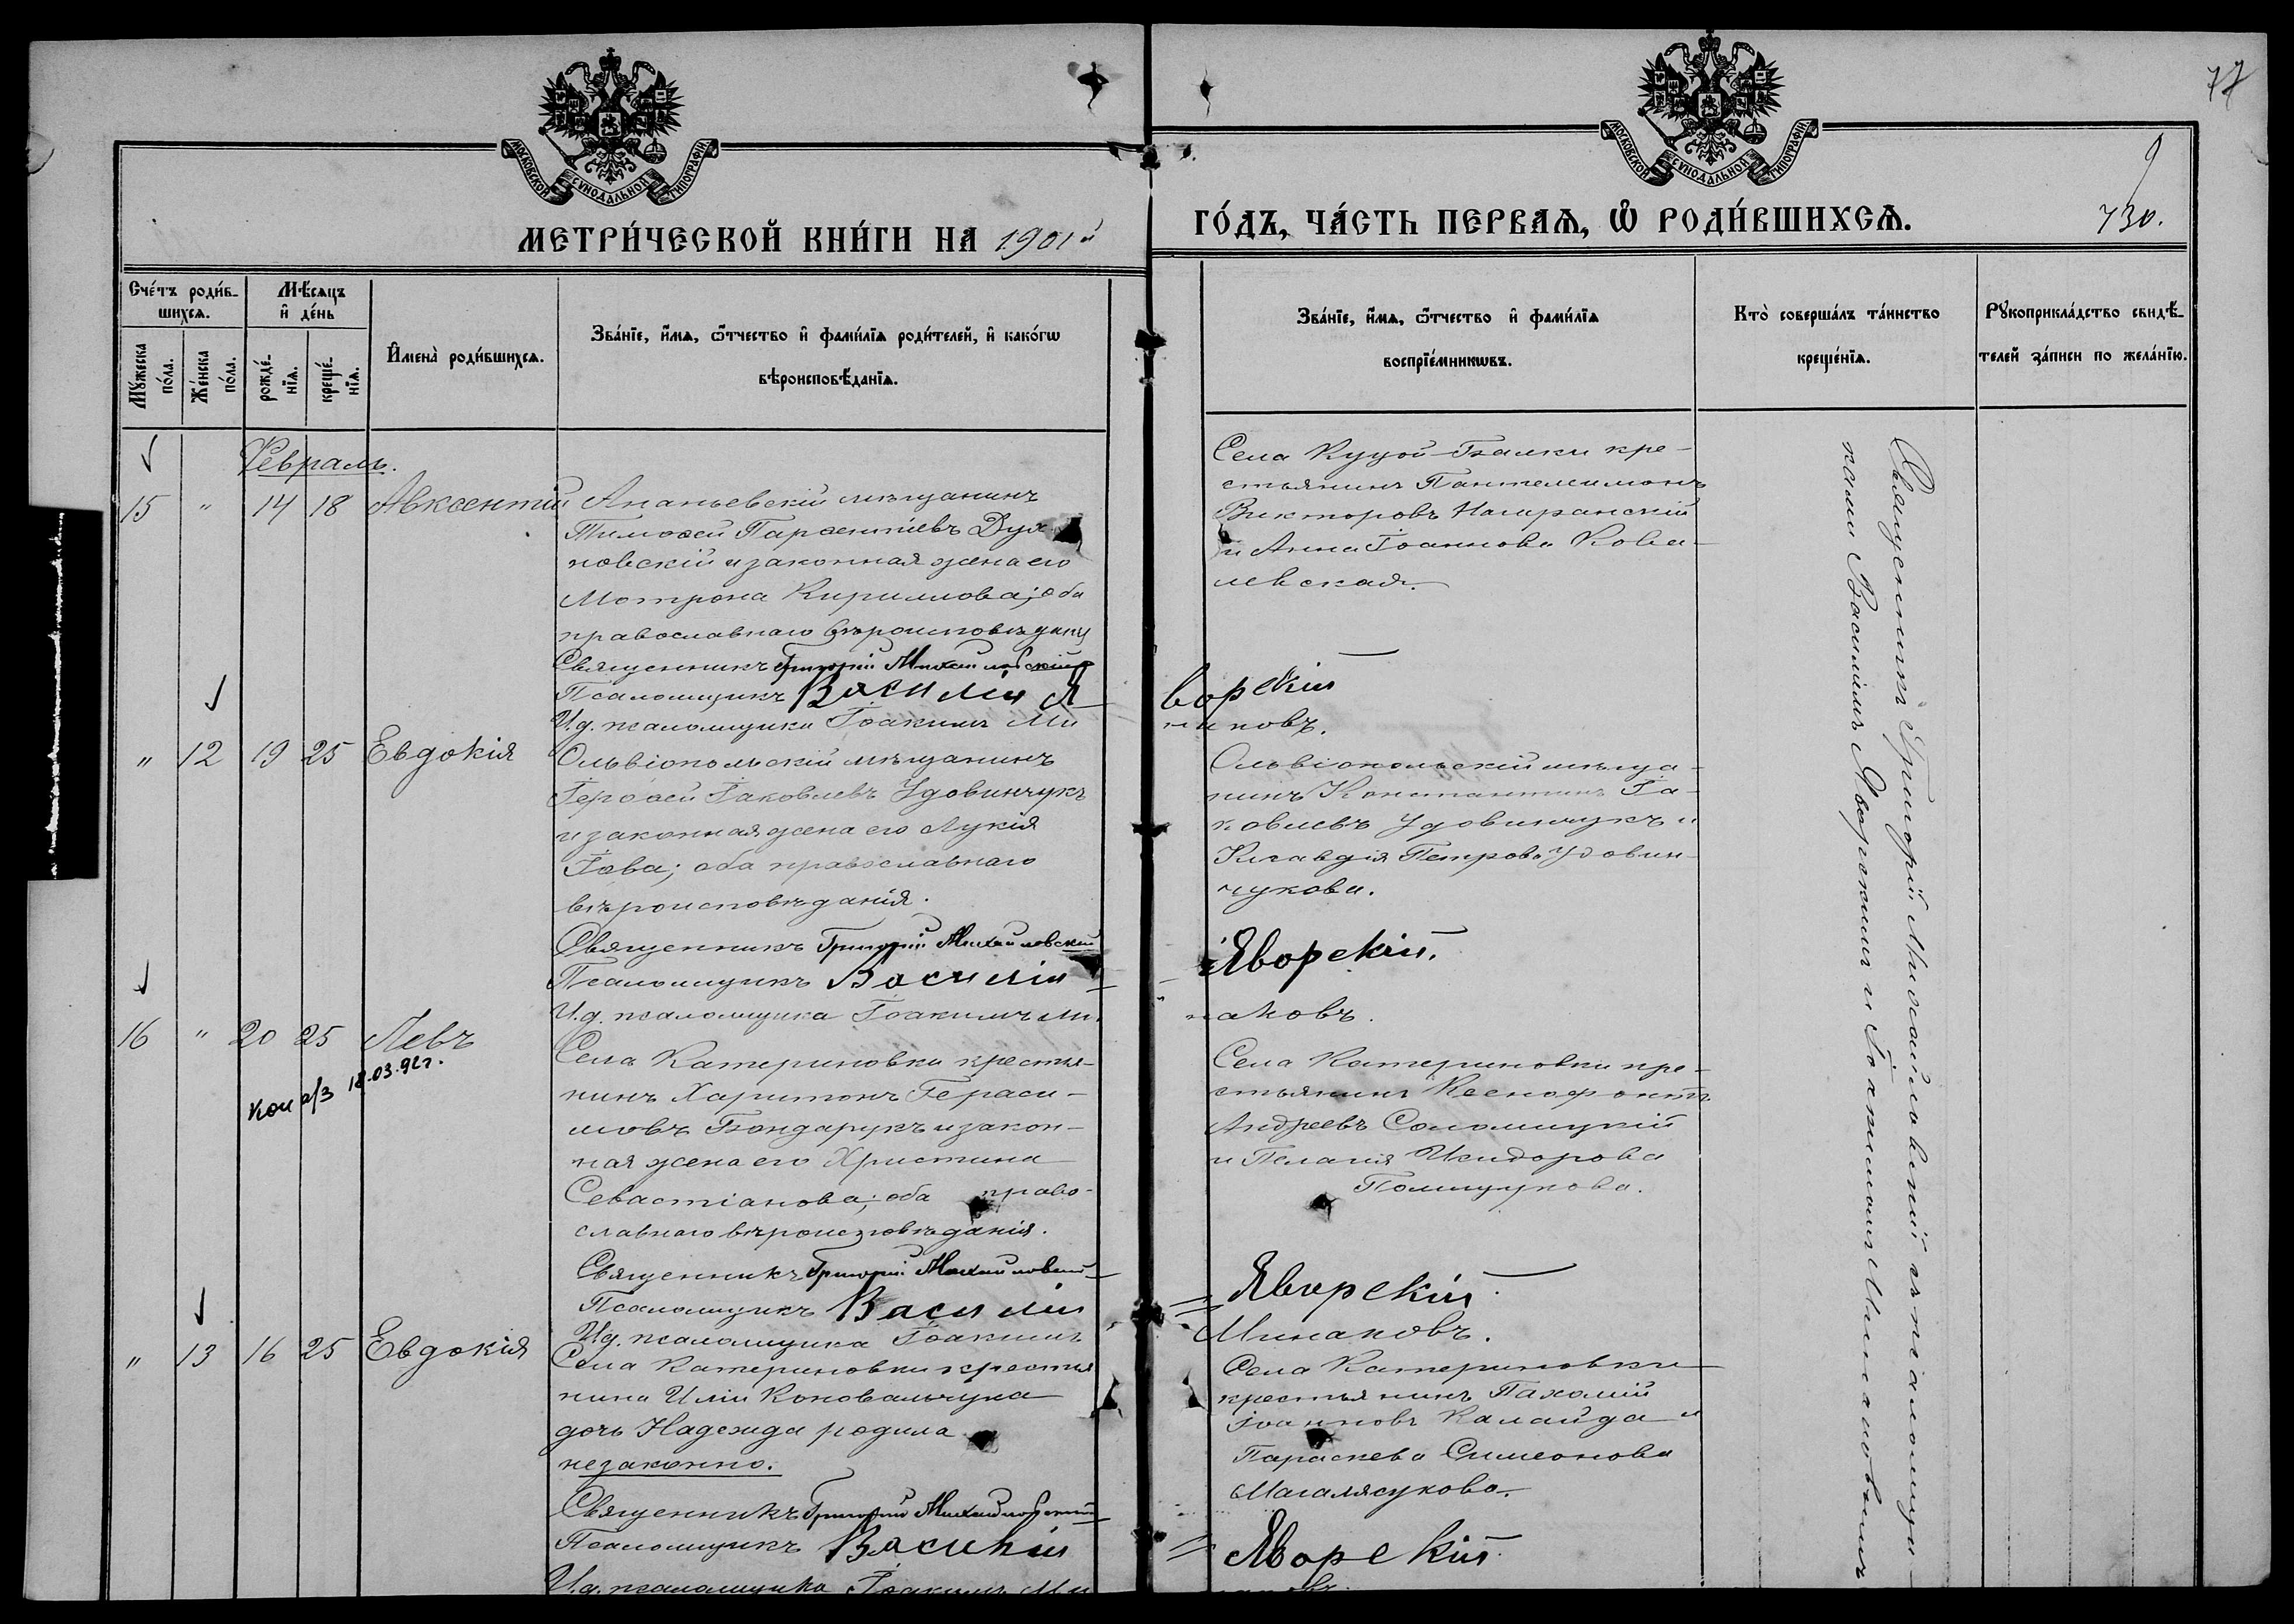 77
МОСКОВСКОЙ СѴНОДАЛЬНОЙ ТИПОГРАФІИ
МОСКОВСКОЙ СѴНОДАЛЬНОЙ ТИПОГРАФІИ
МЕТРИ́ЧЕСКОЙ КНИ́ГИ НА 1901й
ГО́ДЪ, ЧА́СТЬ ПЕРВАѦ, Ѡ҆ РОДИ́ВШИХСѦ.
9
730.
Сче́тъ роди́в-
шихсѧ.
Мꙋжеска по́ла.
Же́нска по́ла.
Мѣ́сѧцъ
и҆ де́нь
рожде́-
нїѧ.
креще́-
нїѧ.
И҆мена̀ роди́вшихсѧ.
Зва́нїе, и҆́мѧ, ѻ҆́тчество и҆ фами́лїѧ роди́телей, и҆ како́гѡ
вѣроисповѣ́данїѧ.
Зва́нїе, и҆́мѧ, ѻ҆́тчество и҆ фами́лїѧ
воспрїе́мникѡвъ.
Кто̀ соверша́лъ та́инство
креще́нїѧ.
Рꙋкоприкла́дство свидѣ́-
телей за́писи по жела́нїю.
Февраль.
15 " 14 18 Авксентій
Ананьевскій мѣщанинъ
Тимофей Парфентіевъ Дух
новскій и законная жена его
Мотрона Кириллова; оба
православнаго вѣроисповѣдан
Священникъ Григорій Михайловскій
Псаломщикъ Василій Яворскій
И.д. псаломщика Іоакимъ Минаковъ.
Села Куцой-Балки кре-
стьянинъ Пантелеимонъ
Викторовъ
и Анна Іоаннова Кова-
левская.
" 12 19 25 Евдокія
Ольвіопольскій мѣщанинъ
Ерофей Іаковлевъ Удовинчукъ
и законная жена его Лукія
Іова; оба православнаго
вѣроисповѣданія.
Священникъ Григорій Михайловскій
Псаломщикъ Василій Яворскій.
И.д. псаломщика Іоакимъ Минаковъ.
Ольвіопольскій мѣща-
нинъ Константинъ Іа-
ковлевъ Удовинчукъ и
Клавдія Петрова Удовин-
чукова.
16 " 20 25 Левъ
коп а/з 18.03.92г.
Села Катериновки крестья-
нинъ Харитонъ Гераси-
мовъ Бондарукъ и закон-
ная жена его Христина
Севастіанова; оба право-
славнаго вѣроисповѣданія.
Священникъ Григорій Михайловскій
Псаломщикъ Василій Яворскій
И.д. псаломщика Іоакимъ Минаковъ.
Села Катериновки кре-
стьянинъ Ксенофонтъ
Андреевъ Соломицкій
и Пелагія Исидорова
Полищукова.
" 13 16 25 Евдокія
Села Катериновки крестья
нина Иліи Коновальчука
дочь Надежда родила
незаконно.
Священникъ Григорій Михайловскій
Псаломщикъ Василій Яворскій
И.д. псаломщика Іоакимъ Минаковъ.
Села Катериновки
крестьянинъ Пахомій
Іоанновъ Калайда и
Параскева Симеонова
Магалясукова.
Священникъ Григорій Михайловскій съ псаломщи-
ками Василіемъ Яворскимъ и Іоакимомъ Минаковымъ